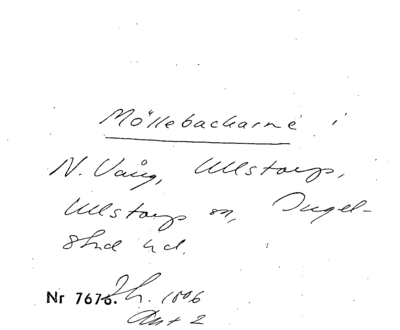 Möllebackarne i
N. Vång, Ullstorp,
Ullstorp sn, Ingel-
sthd hd.
Nr 7676. Jh. 1806
Akt 2